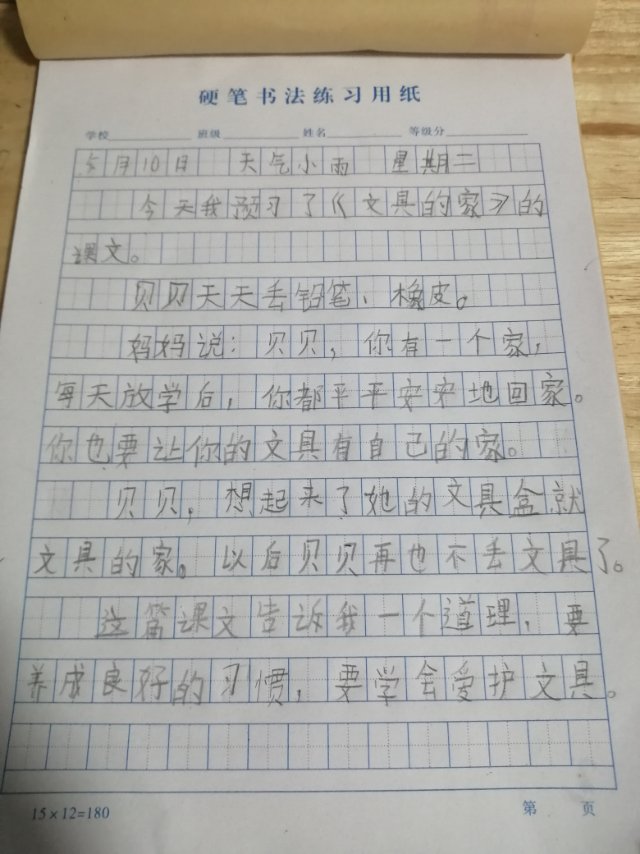 硬笔书法练习用纸
学校 班级 姓名 等级分
5月10日 天气小雨 星期二
今天我预习了《文具的家》的
课文。
贝贝天天丢铅笔、橡皮。
妈妈说:贝贝,你有一个家,
每天放学后,你都平平安安地回家。
你也要让你的文具有自己的家。
贝贝,想起来了她的文具盒就
文具的家。以后贝贝再也不丢文具了。
这篇课文告诉我一个道理,要
养成良好的习惯,要学会爱护文具。
15×12=180 第 页